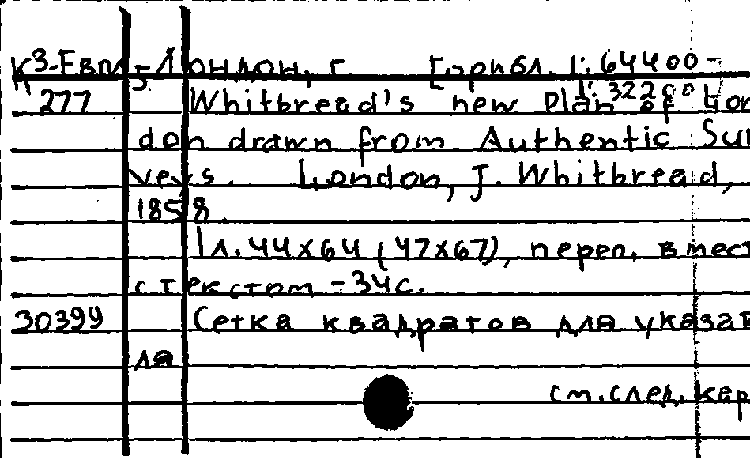 К3-Евп Лондон, г. [прибл. 1:64400-
5 1:32200]
277 Whitbread's new Plan of Lon
don drawn from Authentic Sur
veys. London, J. Whitbread,
1858.
1л. 44x64 (47x67), переп. вмест
с текстом - 34с.
30399 Сетка квадратов для указат
ля
см. след. кар